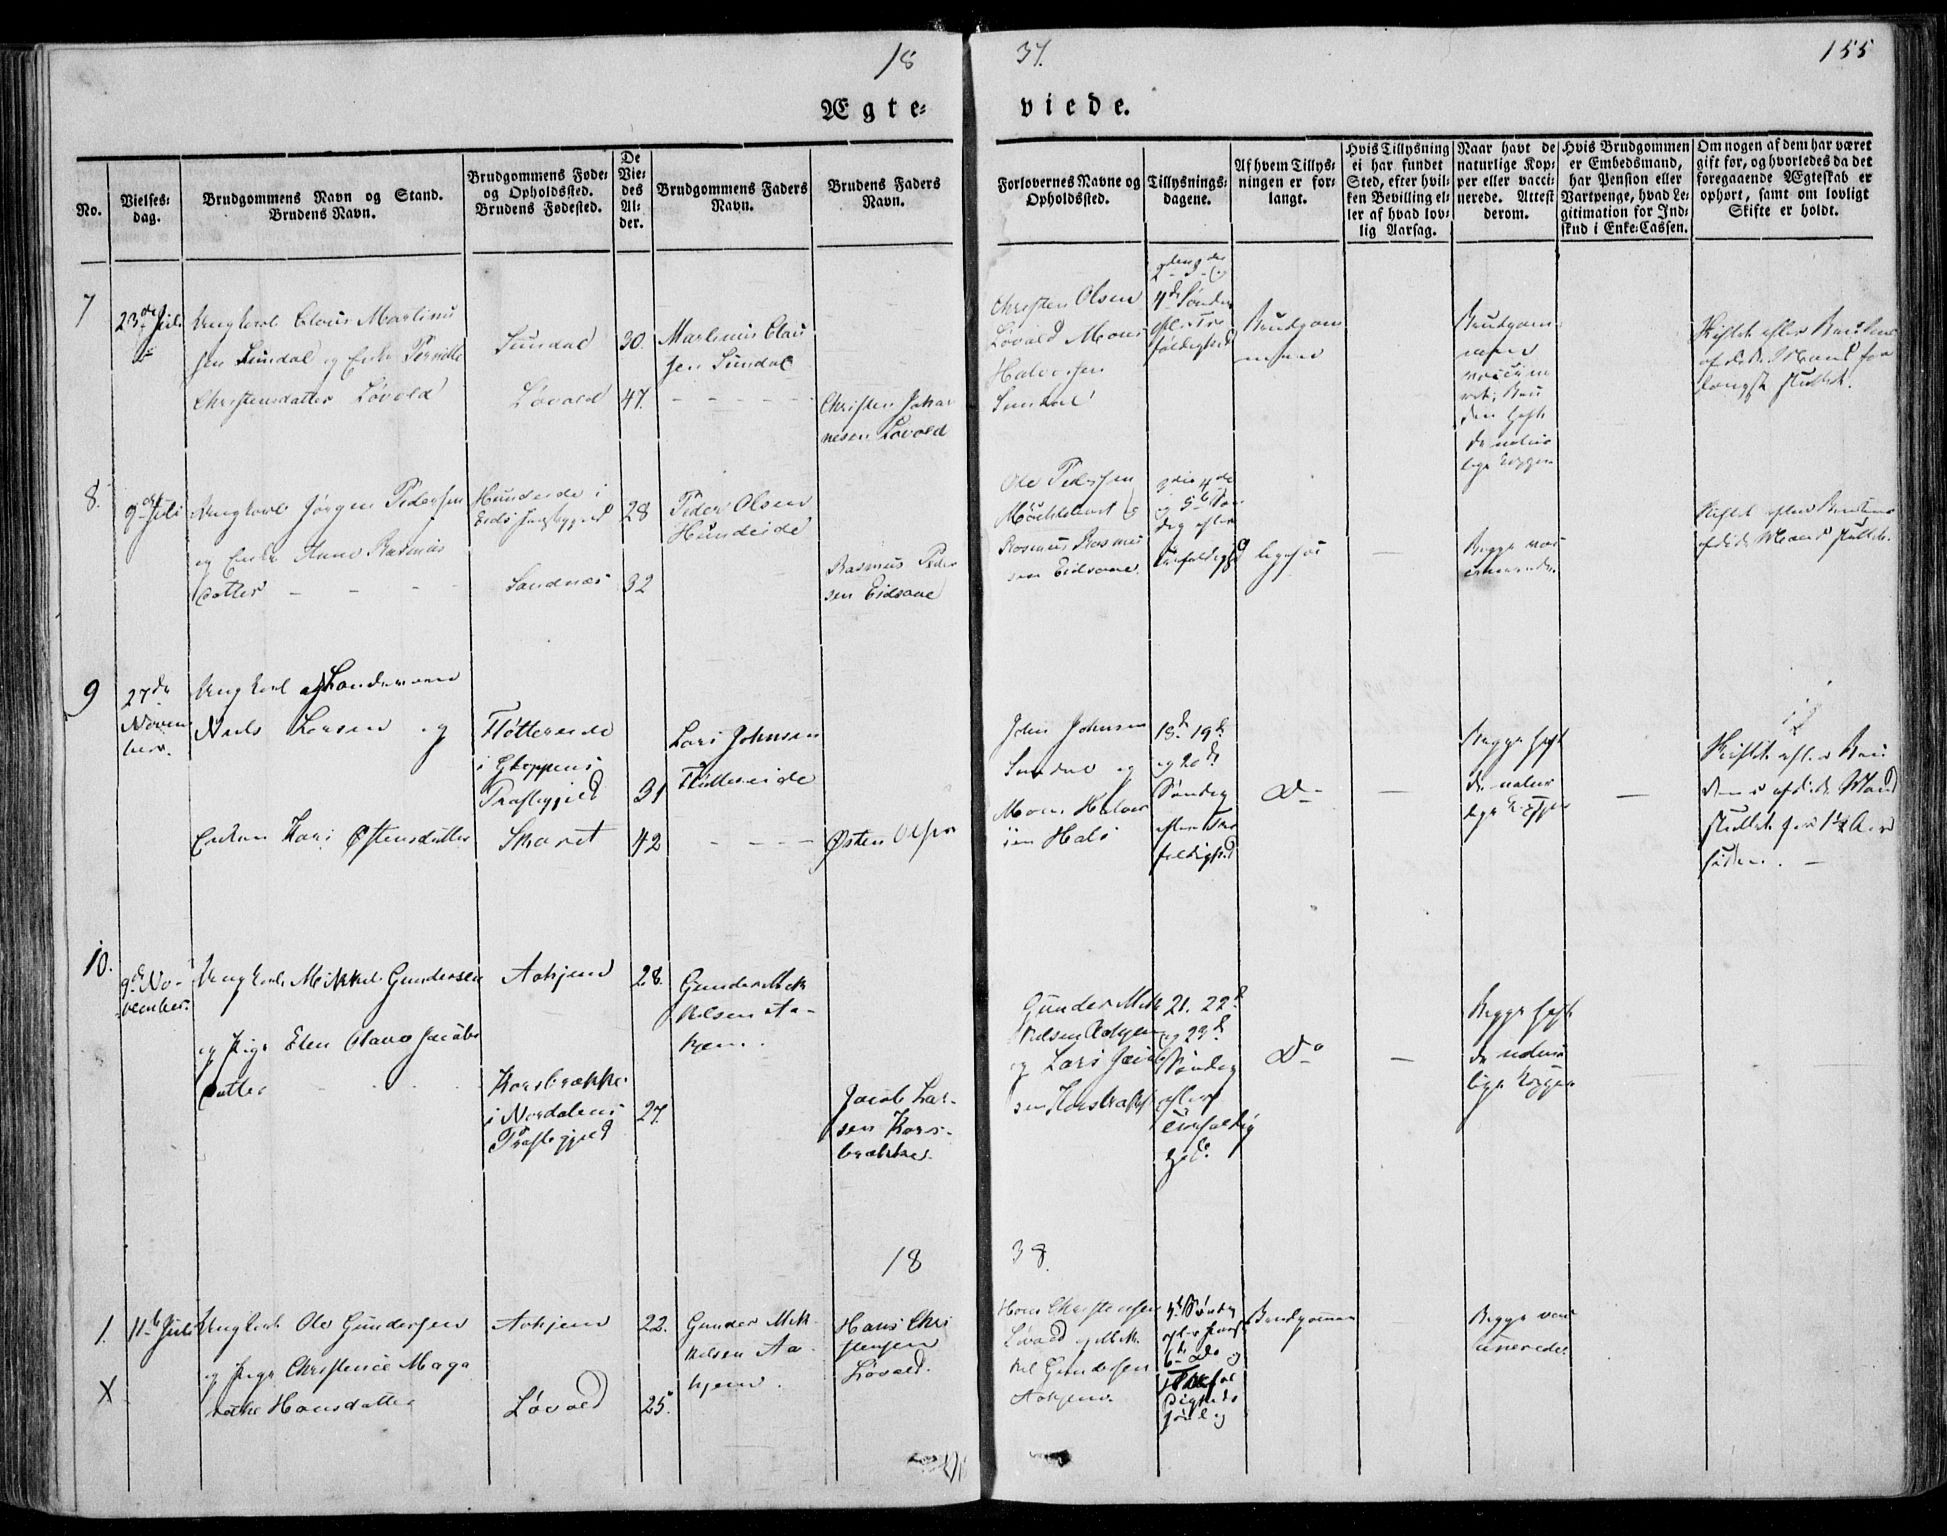 18
37.
155
Ægte=
viede.
No.
Vielses=
dag.
Brudgommens Navn og Stand.
Brudens Navn.
Brudgommens Føde=
og Opholdssted.
Brudens Fødested.
De
Vie=
des
Al=
der.
Brudgommens Faders
Navn.
Brudens Faders
Navn.
Forlovernes Navne og
Opholdssted.
Tillysnings=
dagene.
Af hvem Tillys=
ningen er for=
langt.
Hvis Tillysning
ei har fundet
Sted, efter hvil=
ken Bevilling el=
ler af hvad lov=
lig Aarsag.
Naar havt de
naturlige Kop=
per eller vacci=
nerede. Attest
derom.
Hvis Brudgommen
er Embedsmand,
har Pension eller
Vartpenge, hvad Le=
gitimation for Ind=
skud i Enke=Cassen.
Om nogen af dem har været
gift før, og hvorledes da det
foregaaende Ægteskab er
ophørt, samt om lovligt
Skifte er holdt.
7
23de Juli
Ungkarl Claus Martinus
sen Sundal og Enke Pernille
Christensdatter Løvold
Sundal
Løvold
30.
47.
Martinus Clau
sen Sundal
Christen Johan
nesen Løvold
Christen Olsen
Løvold Mons
Halvorsen
Sundal
4de Søndag
efter Tre
foldighed
Brudgom
men
Brudgom
men
vaccine
ret, Bru
den havt
de natur
lige Kopper
Skiftet efter Brudens
afdøde Mand for
længst sluttet.
8.
9de Juli
Ungkarl Jørgen Pedersen
og Enke Anne Rasmus
datter
Hundeide i
Eids Præstegjeld
Sandnæs
28
32
Peder Olsen
Hundeide
Rasmus Peder
sen Eidsaae
Ole Pedersen
og
Rasmus Rasmus
sen Eidsaae.
3die 4de
og 5te Søn
dag efter
Trefoldighed
ligesaa
Begge vac
cinerede.
Skiftet efter Brudens
afdøde Mand sluttet.
9
27de
Novem
ber.
Ungkarl og Landmand
Niels Larsen og
Enken Kari Østensdatter
Fløtteneide
i Gloppens
Præstegjeld
Skaret
31
42
Lars Johnsen
Flølleneide
Østen Olsen
John Johnsen
Sundal og
Mons Halvor
sen Hals
18de 19de
og 20de
Søndag
efter Tre
foldighed
Do
Begge havt
de natur
lige Kopper
Skiftet efter Bru
dens afdøde Mand
sluttet for 1½ Aar
siden.
10.
9de No-
vember.
Ungkarl Mikkel Gundersen
og Pige Elen Olava Jacobs
datter
Aahjem
Korsbrække
i Nordalens
Præstegjeld
28.
27.
Gunder Mik
kelsen Aa-
hjem.
Jacob Lar-
sen Kors-
brække.
Gunder Mik
kelsen Aahjem
og Lars Jacob
sen Korsbrække
21. 22de
og 23de
Søndag
efter
Trefoldig
hed.
Do
Begge havt
de natur
lige Kopper
18
38.
1.
X
11te Juli
Ungkarl Ole Gundersen
og Pige Christence Maga
rethe Hansdatter
Aahjem
Løvold
22.
25.
Gunder Mik
kelsen Aa-
hjem.
Hans Chri
stensen
Løvold.
Hans Christensen
Løvold og Mik
kel Gundersen
Aahjem.
Søndag
efter Paaske
6te Do og
Trefol
digheds
Søndag
Brudgommen
Begge vac
cinerede.